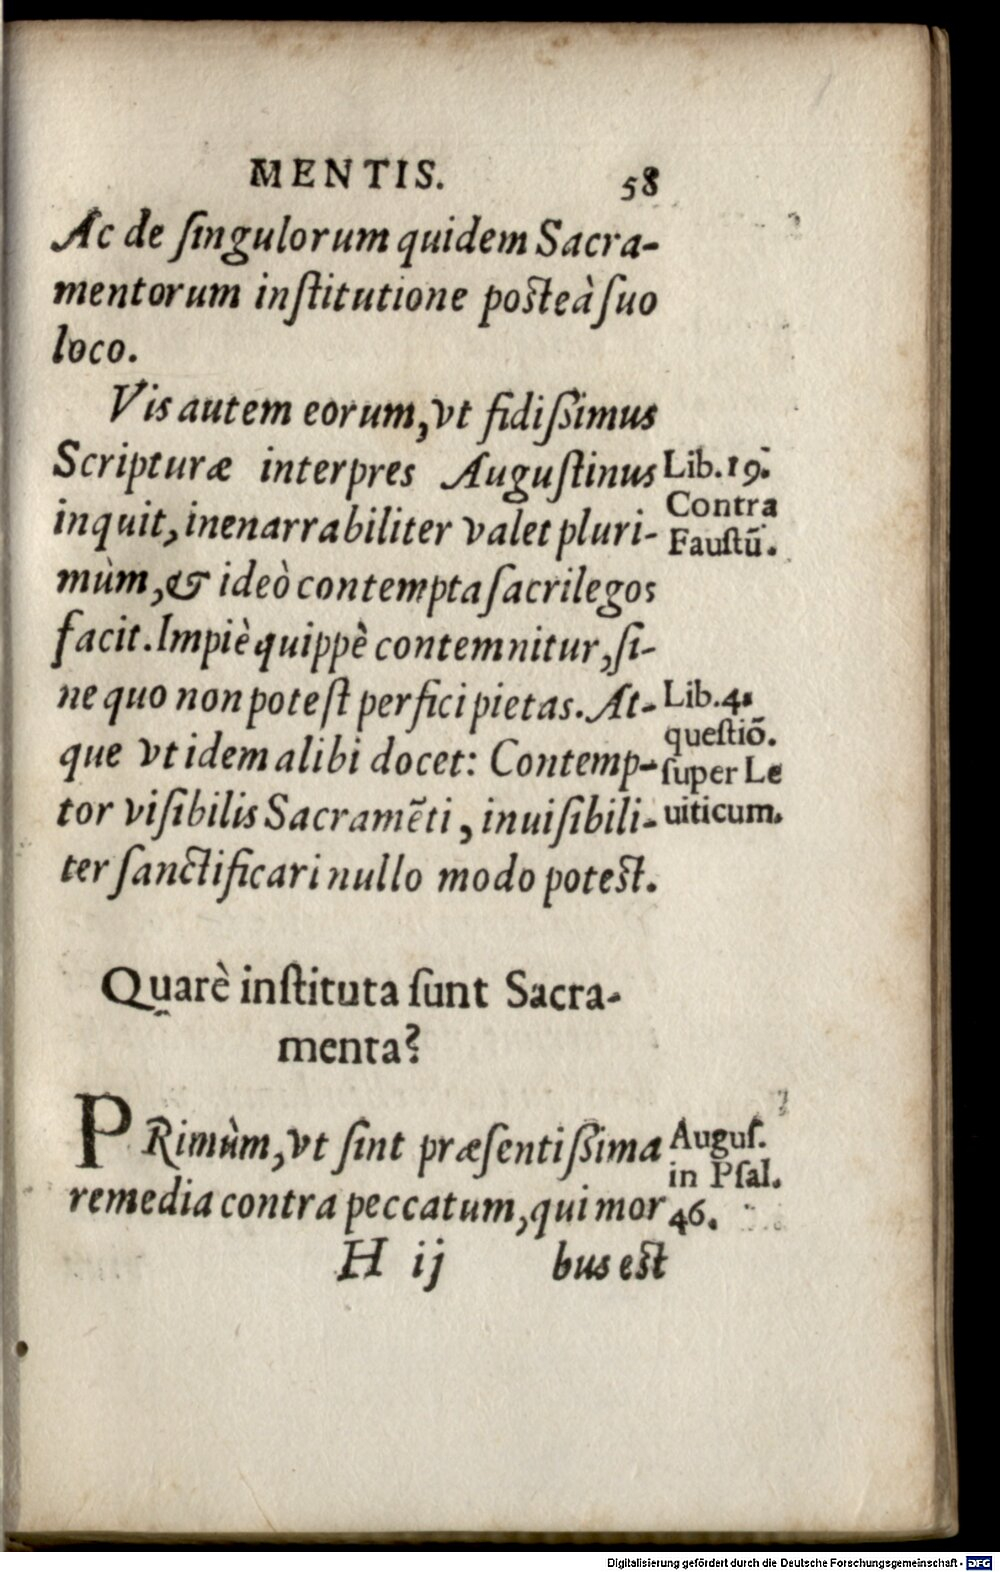 MENTIS. 58
Ac de ſingulorum quidem Sacra-
mentorum inſtitutione poſteà ſuo
loco.
Vis autem eorum, vt fidiſsimus
Scripturæ interpres Auguſtinus
inquit, inenarrabiliter valet pluri-
mùm, & ideò contempta ſacrilegos
facit. Impiè quippè contemnitur, ſi-
ne quo non poteſt perfici pietas. At-
que vt idem alibi docet: Contemp-
tor viſibilis Sacramẽti, inuiſibili-
ter ſanctificari nullo modo poteſt.
Lib. 19.
Contra
Fauſtũ.
Lib. 4.
queſtiõ.
ſuper Le
uiticum.
Quarè inſtituta ſunt Sacra-
menta?
PRimùm, vt ſint præſentiſsima
remedia contra peccatum, qui mor
Auguſ.
in Pſal.
46.
H ij bus eſt
Digitalisierung gefördert durch die Deutsche Forschungsgemeinschaft - DFG